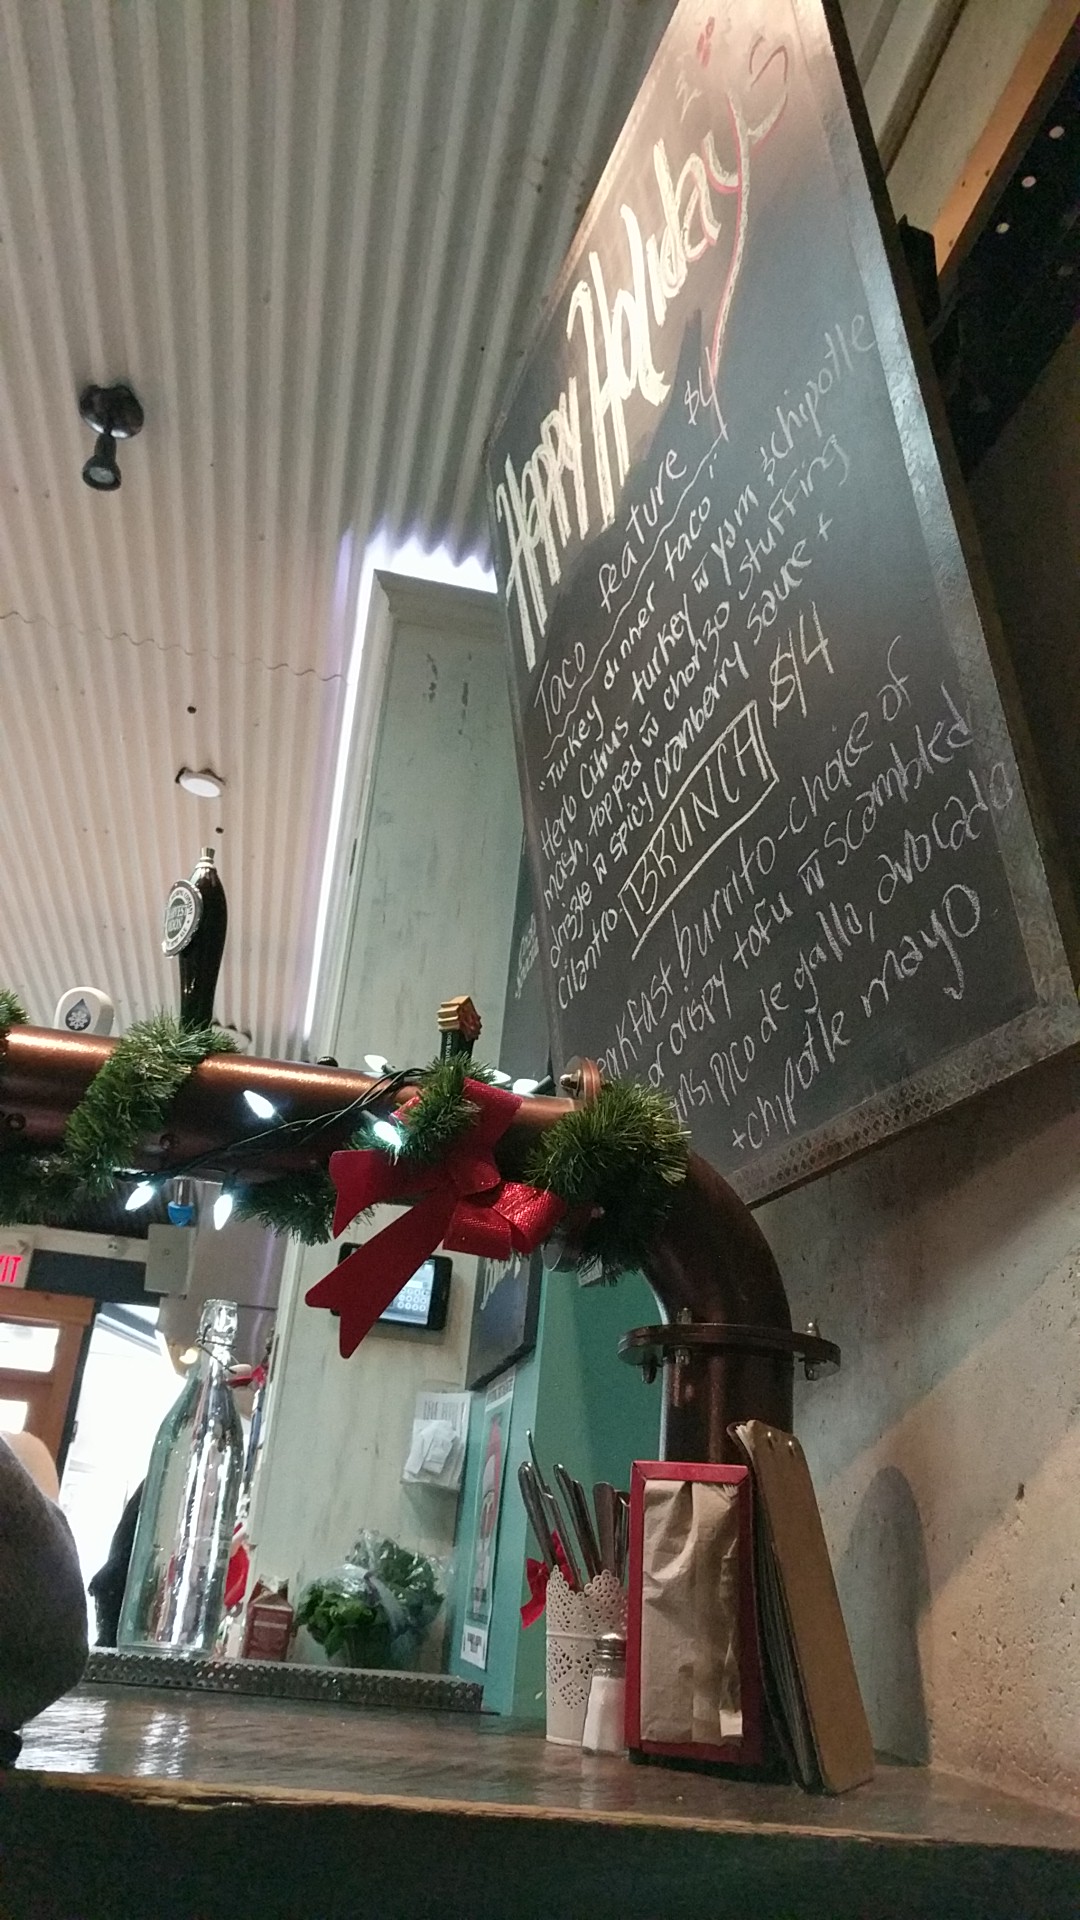 Happy Holidays
Taco feature $4
"Turkey dinner taco":
Herb Citrus turkey w̄ yam & chipotle
mash, topped w̄ chorizo stuffing
drizzle w̄ spicy cranberry sauce +
cilantro.
BRUNCH $14
burrito - choice of
or crispy tofu w̄ scambled
pico de gallo, avocado
+ chipotle mayo